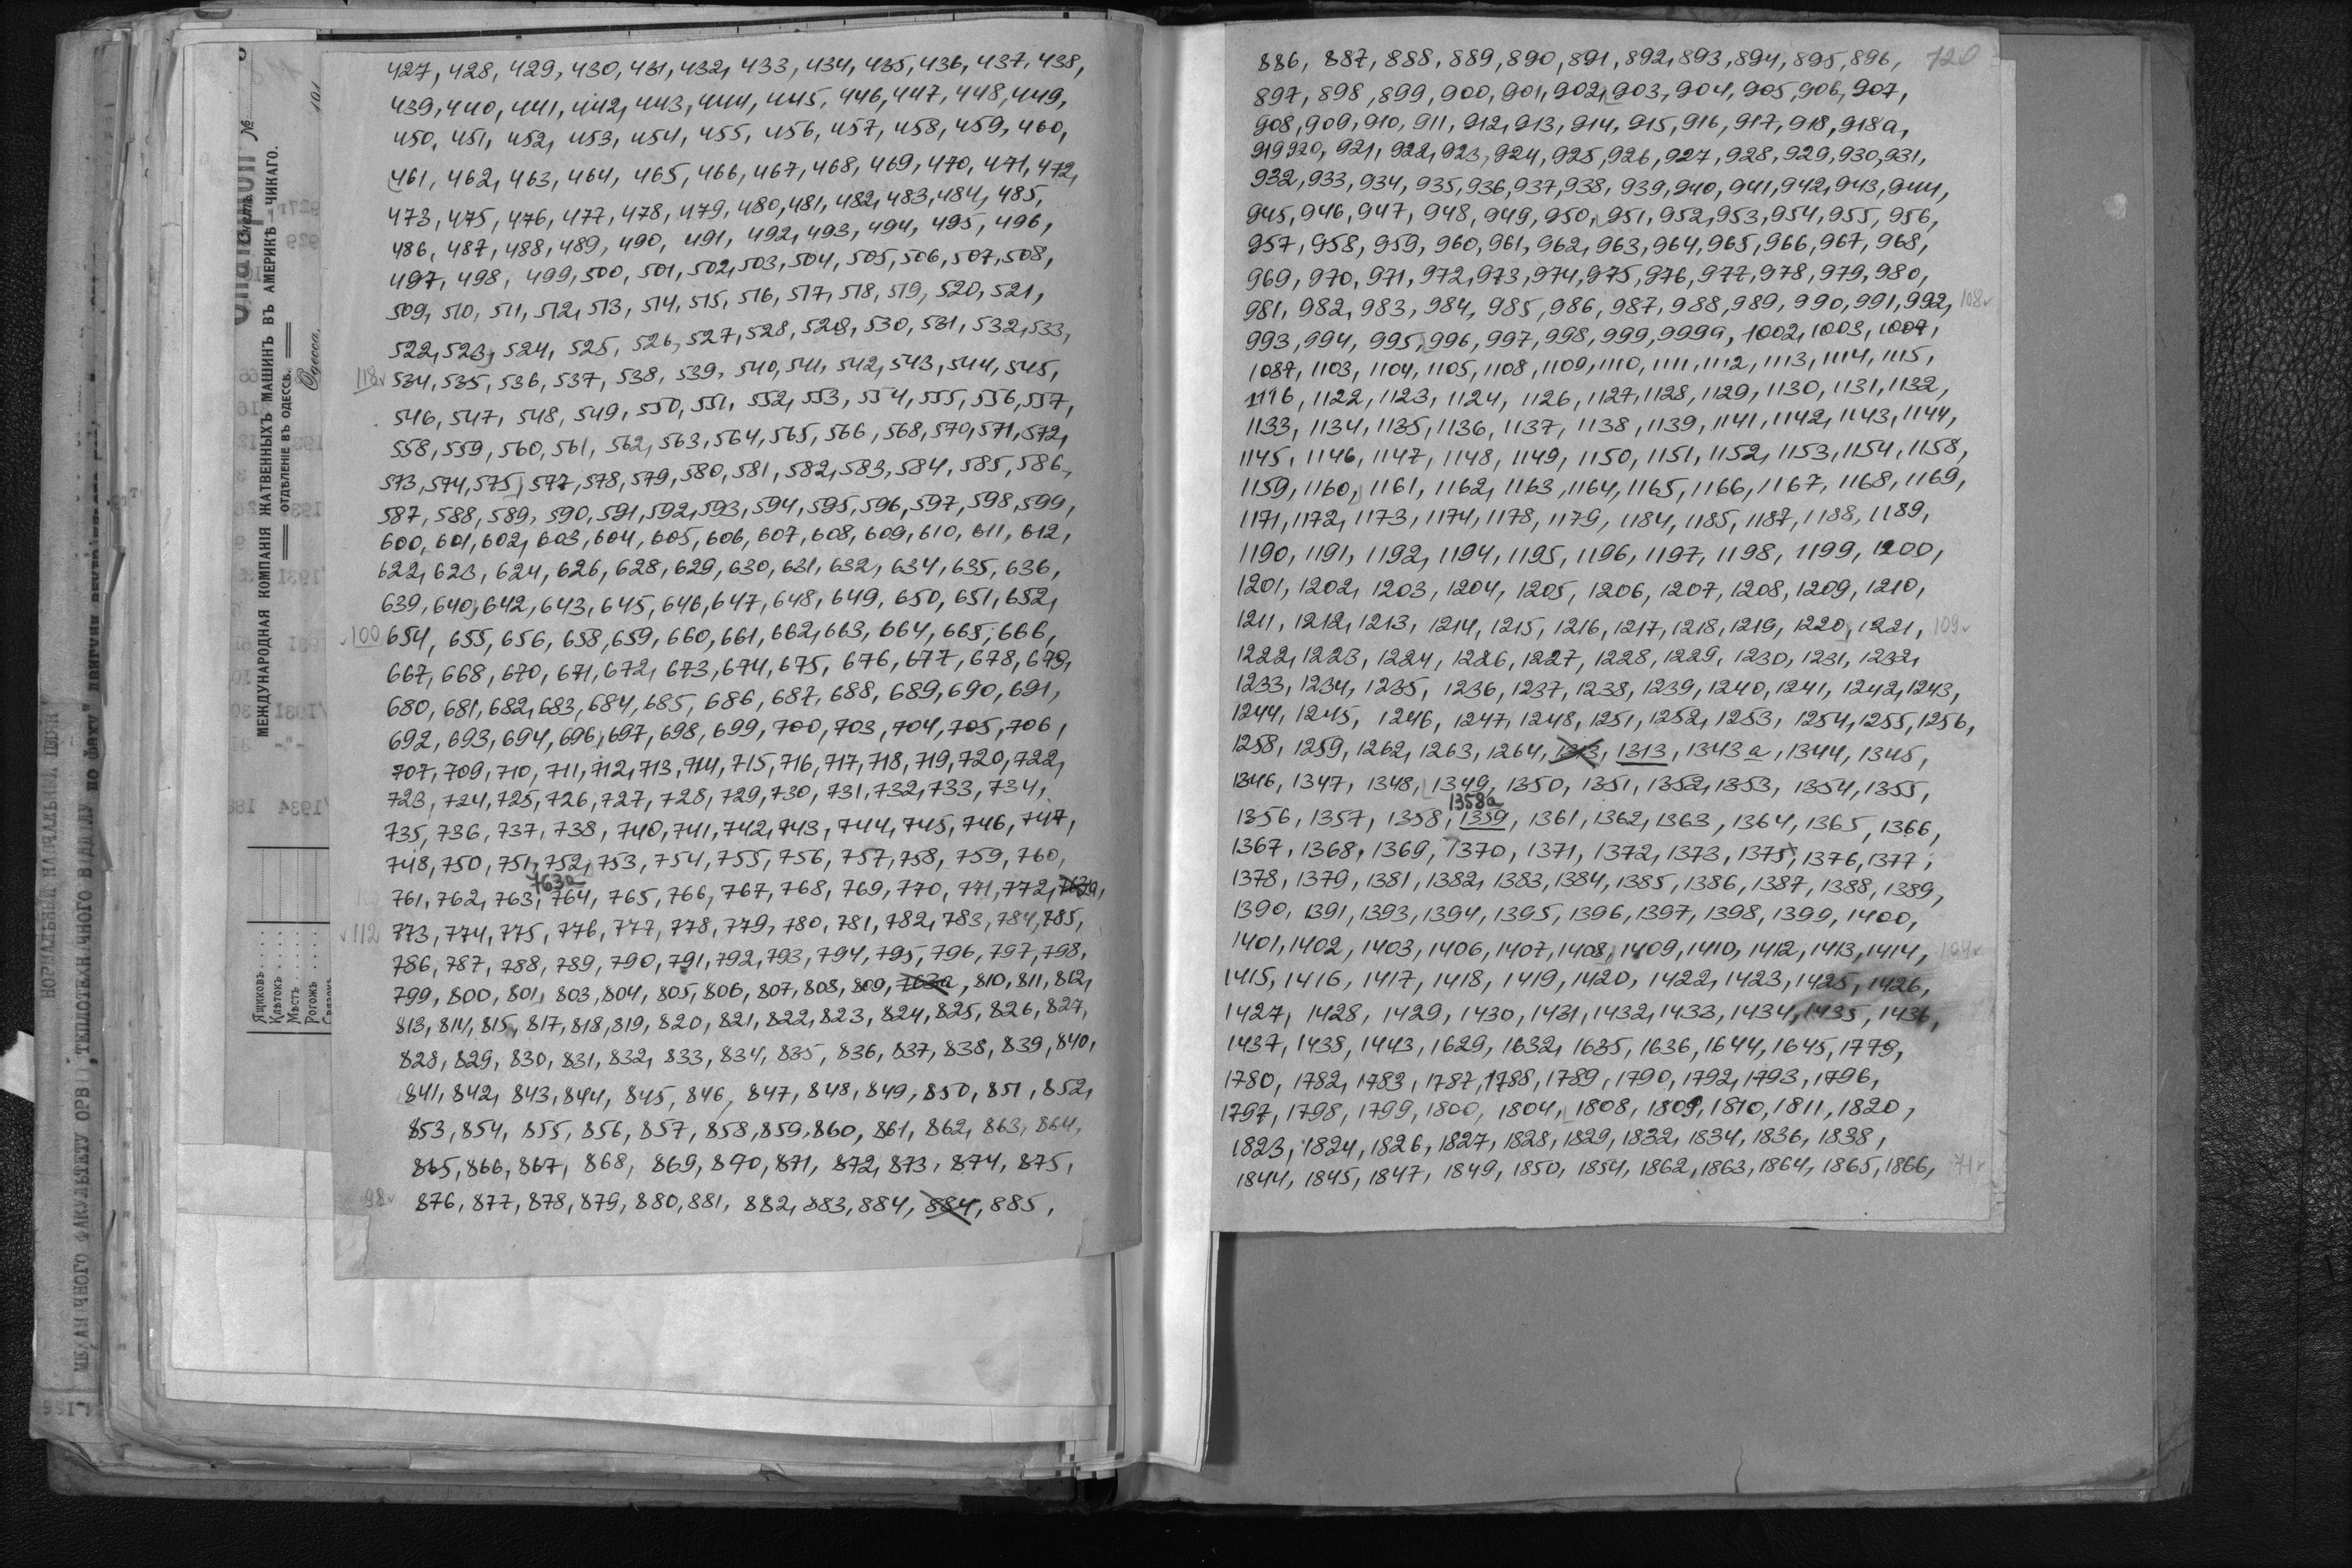 427, 428, 429, 430, 431, 432, 433, 434, 435, 436, 437, 438,
439, 440, 441, 442, 443, 444, 445, 446, 447, 448, 449,
450, 451, 452, 453, 454, 455, 456, 457, 458, 459, 460,
461, 462, 463, 464, 465, 466, 467, 468, 469, 470, 471, 472,
473, 475, 476, 477, 478, 479, 480, 481, 482, 483, 484, 485,
486, 487, 488, 489, 490, 491, 492, 493, 494, 495, 496,
497, 498, 499, 500, 501, 502, 503, 504, 505, 506, 507, 508,
509, 510, 511, 512, 513, 514, 515, 516, 517, 518, 519, 520, 521,
522, 523, 524, 525, 526, 527, 528, 529, 530, 531, 532, 533,
118v 534, 535, 536, 537, 538, 539, 540, 541, 542, 543, 544, 545,
546, 547, 548, 549, 550, 551, 552, 553, 554, 555, 556, 557,
558, 559, 560, 561, 562, 563, 564, 565, 566, 568, 570, 571, 572,
573, 574, 575, 577, 578, 579, 580, 581, 582, 583, 584, 585, 586,
587, 588, 589, 590, 591, 592, 593, 594, 595, 596, 597, 598, 599,
600, 601, 602, 603, 604, 605, 606, 607, 608, 609, 610, 611, 612,
622, 623, 624, 626, 628, 629, 630, 631, 632, 634, 635, 636,
639, 640, 642, 643, 645, 646, 647, 648, 649, 650, 651, 652,
v100 654, 655, 656, 658, 659, 660, 661, 662, 663, 664, 665, 666,
667, 668, 670, 671, 672, 673, 674, 675, 676, 677, 678, 679,
680, 681, 682, 683, 684, 685, 686, 687, 688, 689, 690, 691,
692, 693, 694, 696, 697, 698, 699, 700, 703, 704, 705, 706,
707, 709, 710, 711, 712, 713, 714, 715, 716, 717, 718, 719, 720, 722,
723, 724, 725, 726, 727, 728, 729, 730, 731, 732, 733, 734,
735, 736, 737, 738, 740, 741, 742, 743, 744, 745, 746, 747,
748, 750, 751, 752, 753, 754, 755, 756, 757, 758, 759, 760,
763а
761, 762, 763, 764, 765, 766, 767, 768, 769, 770, 771, 772, 763а,
v112 773, 774, 775, 776, 777, 778, 779, 780, 781, 782, 783, 784, 785,
786, 787, 788, 789, 790, 791, 792, 793, 794, 795, 796, 797, 798,
799, 800, 801, 803, 804, 805, 806, 807, 808, 809, 763а, 810, 811, 812,
813, 814, 815, 817, 818, 819, 820, 821, 822, 823, 824, 825, 826, 827,
828, 829, 830, 831, 832, 833, 834, 835, 836, 837, 838, 839, 840,
841, 842, 843, 844, 845, 846, 847, 848, 849, 850, 851, 852,
853, 854, 855, 856, 857, 858, 859, 860, 861, 862, 863, 864,
865, 866, 867, 868, 869, 870, 871, 872, 873, 874, 875,
98v 876, 877, 878, 879, 880, 881, 882, 883, 884, 884, 885,
886, 887, 888, 889, 890, 891, 892, 893, 894, 895, 896, 120
897, 898, 899, 900, 901, 902, 903, 904, 905, 906, 907,
908, 909, 910, 911, 912, 913, 914, 915, 916, 917, 918, 918а,
919 920, 921, 922, 923, 924, 925, 926, 927, 928, 929, 930, 931,
932, 933, 934, 935, 936, 937, 938, 939, 940, 941, 942, 943, 944,
945, 946, 947, 948, 949, 950, 951, 952, 953, 954, 955, 956,
957, 958, 959, 960, 961, 962, 963, 964, 965, 966, 967, 968,
969, 970, 971, 972, 973, 974, 975, 976, 977, 978, 979, 980,
981, 982, 983, 984, 985, 986, 987, 988, 989, 990, 991, 992, 108v
993, 994, 995, 996, 997, 998, 999, 999а, 1002, 1003, 1007,
1087, 1103, 1104, 1105, 1108, 1109, 1110, 1111, 1112, 1113, 1114, 1115,
1116, 1122, 1123, 1124, 1126, 1127, 1128, 1129, 1130, 1131, 1132,
1133, 1134, 1135, 1136, 1137, 1138, 1139, 1141, 1142, 1143, 1144,
1145, 1146, 1147, 1148, 1149, 1150, 1151, 1152, 1153, 1154, 1158,
1159, 1160, 1161, 1162, 1163, 1164, 1165, 1166, 1167, 1168, 1169,
1171, 1172, 1173, 1174, 1178, 1179, 1184, 1185, 1187, 1188, 1189,
1190, 1191, 1192, 1194, 1195, 1196, 1197, 1198, 1199, 1200,
1201, 1202, 1203, 1204, 1205, 1206, 1207, 1208, 1209, 1210,
1211, 1212, 1213, 1214, 1215, 1216, 1217, 1218, 1219, 1220, 1221, 109v
1222, 1223, 1224, 1226, 1227, 1228, 1229, 1230, 1231, 1232,
1233, 1234, 1235, 1236, 1237, 1238, 1239, 1240, 1241, 1242, 1243,
1244, 1245, 1246, 1247, 1248, 1251, 1252, 1253, 1254, 1255, 1256,
1258, 1259, 1262, 1263, 1264, 1313, 1313, 1343а, 1344, 1345,
1346, 1347, 1348, 1349, 1350, 1351, 1352, 1353, 1354, 1355,
1358а
1356, 1357, 1358, 1359, 1361, 1362, 1363, 1364, 1365, 1366,
1367, 1368, 1369, 1370, 1371, 1372, 1373, 1375, 1376, 1377,
1378, 1379, 1381, 1382, 1383, 1384, 1385, 1386, 1387, 1388, 1389,
1390, 1391, 1393, 1394, 1395, 1396, 1397, 1398, 1399, 1400,
1401, 1402, 1403, 1406, 1407, 1408, 1409, 1410, 1412, 1413, 1414, 104v
1415, 1416, 1417, 1418, 1419, 1420, 1422, 1423, 1425, 1426,
1427, 1428, 1429, 1430, 1431, 1432, 1433, 1434, 1435, 1436,
1437, 1438, 1443, 1629, 1632, 1635, 1636, 1644, 1645, 1779,
1780, 1782, 1783, 1787, 1788, 1789, 1790, 1792, 1793, 1796,
1797, 1798, 1799, 1800, 1804, 1808, 1809, 1810, 1811, 1820,
1823, 1824, 1826, 1827, 1828, 1829, 1832, 1834, 1836, 1838,
1844, 1845, 1847, 1849, 1850, 1854, 1862, 1863, 1864, 1865, 1866, 71v
МЕЖДУНАРОДНАЯ КОМПАНІЯ ЖАТВЕННЫХЪ МАШИНЪ ВЪ АМЕРИКѢ - ЧИКАГО.
ОТДѢЛЕНІЕ ВЪ ОДЕССѢ.
Одесса,
№
191
Ящиковъ
Клѣтокъ
Мѣстъ
Рогожъ